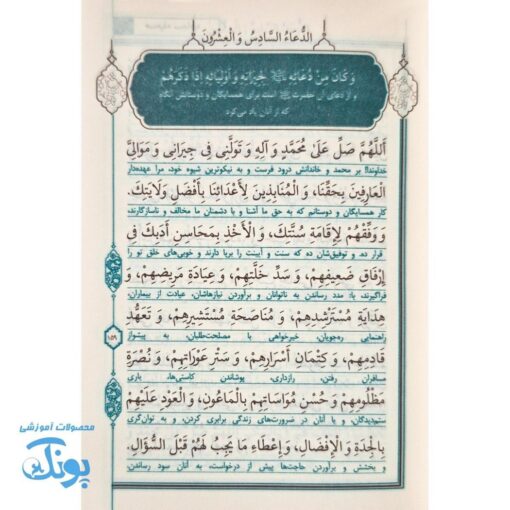 الدُّعَاءُ السَّادِسُ وَ الْعِشْرُونَ
وَ كَانَ مِنْ دُعَائِهِ ﷺ لِجِيرَانِهِ وَ أَوْلِيَائِهِ إِذَا ذَكَرَهُمْ
و از دعای آن حضرت ﷺ است برای همسایگان و دوستانش آنگاه
که از آنان یاد می‌کرد
أَللَّهُمَّ صَلِّ عَلَىٰ مُحَمَّدٍ وَ آلِهِ وَ تَوَلَّنِى فِى جِيرَانِى وَ مَوَالِىَّ
خداوندا! بر محمد و خاندانش درود فرست و به نیکوترین شیوه خود، مرا عهده‌دار
الْعَارِفِينَ بِحَقِّنَا، وَ الْمُنَابِذِينَ لِأَعْدَائِنَا بِأَفْضَلِ وَلَايَتِكَ.
کار همسایگان و دوستانم که به حق ما آشنا و با دشمنان ما مخالف و ناسازگارند،
وَ وَفِّقْهُمْ لِإِقَامَةِ سُنَّتِكَ، وَ الْأَخْذِ بِمَحَاسِنِ أَدَبِكَ فِى
قرار ده. و توفیق‌شان ده که سنت و آیینت را برپا دارند و خوبی‌های خلق تو را
إِرْفَاقِ ضَعِيفِهِمْ، وَ سَدِّ خَلَّتِهِمْ، وَ عِيَادَةِ مَرِيضِهِمْ، وَ
فراگیرند، با: مدد رساندن به ناتوانان و برآوردن نیازهاشان، عیادت از بیماران،
هِدَايَةِ مُسْتَرْشِدِهِمْ، وَ مُنَاصَحَةِ مُسْتَشِيرِهِمْ، وَ تَعَهُّدِ
راهنمایی ره‌جویان، خیرخواهی با مصلحت‌طلبان، به پیشواز
۱۵۹
قَادِمِهِمْ، وَ كِتْمَانِ أَسْرَارِهِمْ، وَ سَتْرِ عَوْرَاتِهِمْ، وَ نُصْرَةِ
مسافران رفتن، رازداری، پوشاندن کاستی‌ها، یاری
مَظْلُومِهِمْ وَ حُسْنِ مُوَاسَاتِهِمْ بِالْمَاعُونِ، وَ الْعَوْدِ عَلَيْهِمْ
ستمدیدگان، و با آنان در ضرورت‌های زندگی برابری کردن، و به توان‌گری
بِالْجِدَةِ وَ الْإِفْضَالِ، وَ إِعْطَاءِ مَا يَجِبُ لَهُمْ قَبْلَ السُّؤَالِ.
و بخشش و برآوردن حاجت‌ها پیش از درخواست، به آنان سود رساندن.
محصولات آموزشی
پونک